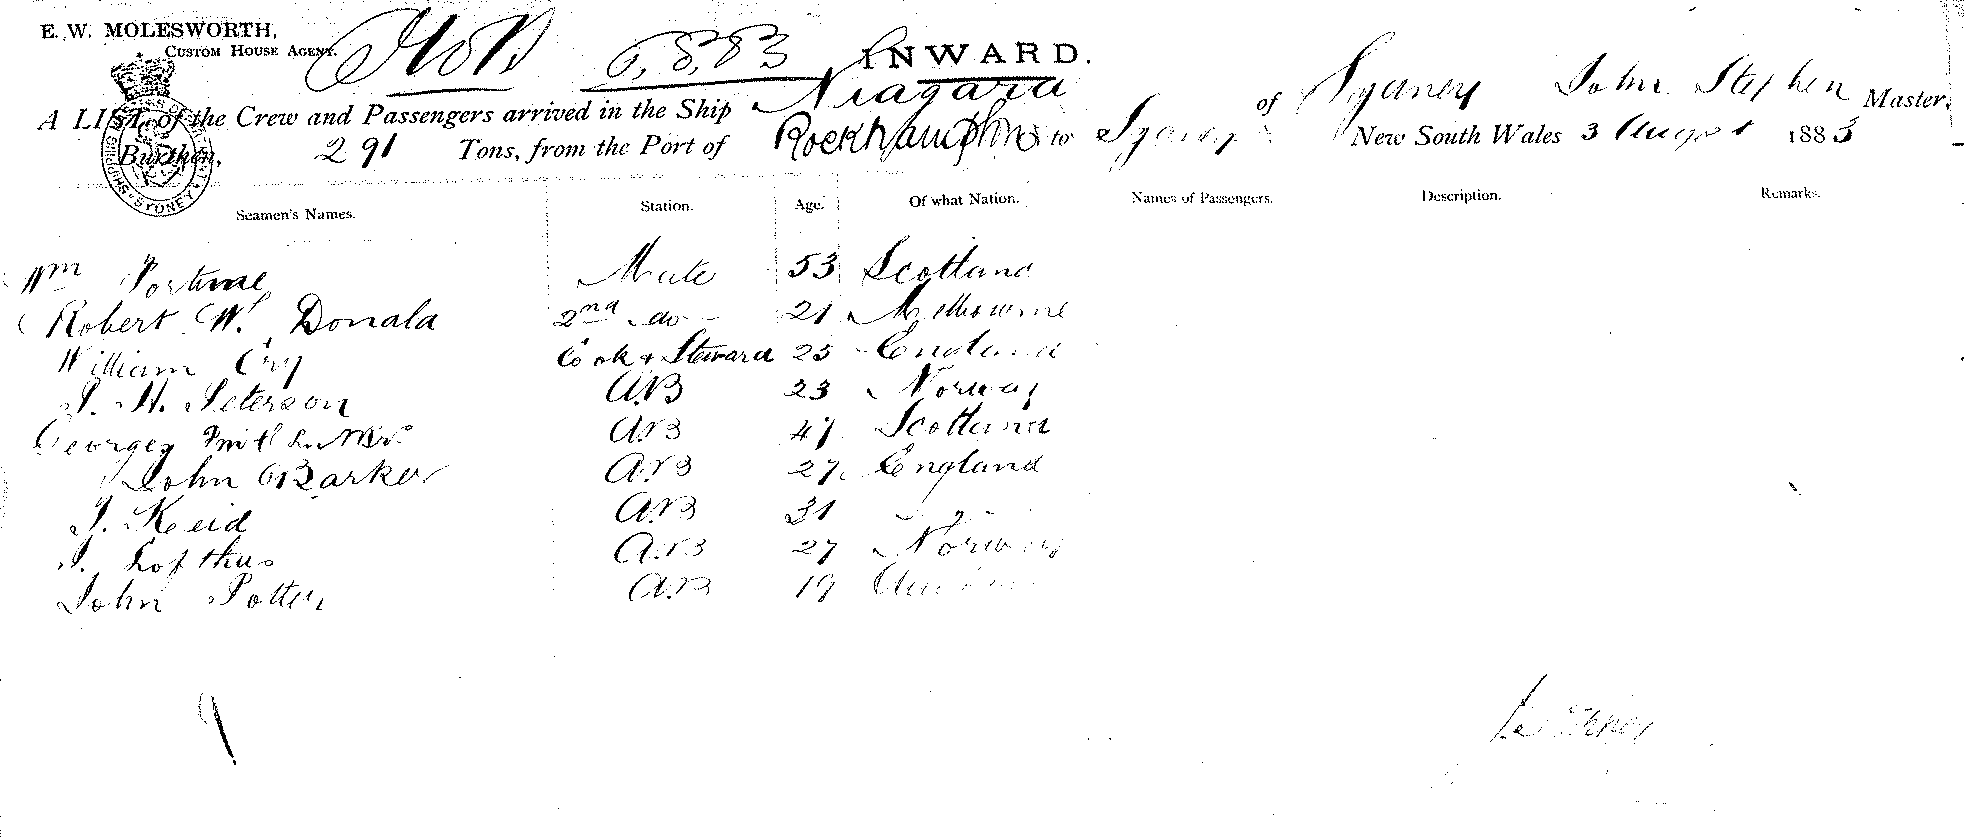 E. W. MOLESWORTH,
CUSTOM HOUSE AGENT.
6.8.83
INWARD.
A LIST of the Crew and Passengers arrived in the Ship Niagara of Sydney John Stephen Master,
Burthen, 291 Tons, from the Port of Rockhampton to Sydney New South Wales 3 August 1883
Seamen's Names. Station. Age. Of what Nation. Names of Passengers. Description. Remarks.
Wm Mate 53 Scotland
Robert Donald 2nd do 21 Melbourne
William Cook & Steward 25 England
Peterson A.B 23 Norway
A.B 47 Scotland
John Barker A.B 27 England
Reid A.B 31 - " -
Lofthus A.B 27 Norway
John Potter A.B 19
9